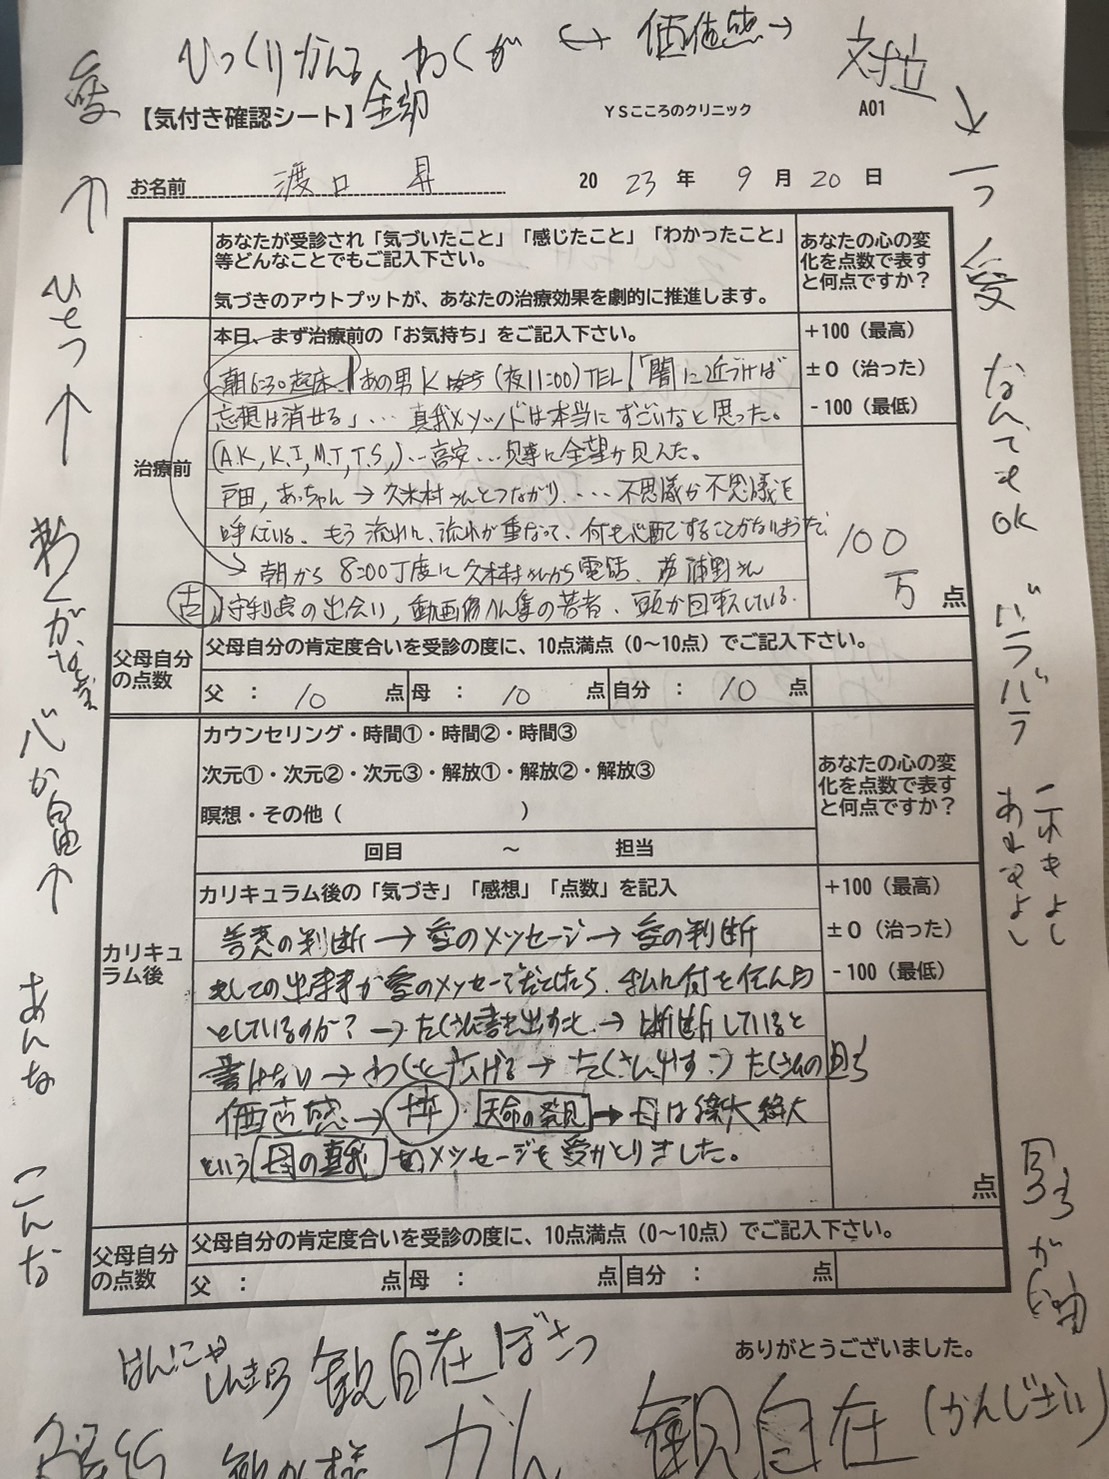 ひっくりかえる わくが ↔ 価値感→ 対立
愛
【気付き確認シート】
YSこころのクリニック
A01
お名前 渡口 昇
2023年9月20日
あなたが受診され「気づいたこと」「感じたこと」「わかったこと」
等どんなことでもご記入下さい。
気づきのアウトプットが、あなたの治療効果を劇的に推進します。
あなたの心の変
化を点数で表す
と何点ですか？
治療前
本日、まず治療前の「お気持ち」をご記入下さい。
+100（最高）
±0（治った）
-100（最低）
朝6:30起床、あの男K (夜11:00) TEL「闇に近づけば
忘想は消せる」… 真我メソッドは本当にすごいなと思った。
(A.K, K.I, M.T, T.S,)
戸田，あっちゃん→久米村さんとつながり、…不思議が不思議を
呼んでいる。もう流れに、流れが重なって、何も心配することがないようだ、
→朝から8:00丁度に久米村さんから電話、
の出会い，動画 の若者、頭が回転している。
100
万 点
父母自分
の点数
父母自分の肯定度合いを受診の度に、10点満点（0～10点）でご記入下さい。
父 ： 10 点 母 ： 10 点 自分 ： 10 点
カリキュ
ラム後
カウンセリング・時間①・時間②・時間③
次元①・次元②・次元③・解放①・解放②・解放③
瞑想・その他（ ）
回目 ～ 担当
あなたの心の変
化を点数で表す
と何点ですか？
カリキュラム後の「気づき」「感想」「点数」を記入
+100（最高）
±0（治った）
-100（最低）
善悪の判断→愛のメッセージ→愛の判断
全ての出来事が愛のメッセージだとしたら、私に何を伝えん
としているのか？→たくさん書き出すこと→判断していると
書けない→わくを広げる→たくさん出す：）たくさんの
価値感→ 天命の発見→母は
という母の真我 のメッセージを受けとりました。
点
父母自分
の点数
父母自分の肯定度合いを受診の度に、10点満点（0～10点）でご記入下さい。
父 ： 点 母 ： 点 自分 ： 点
ありがとうございました。
はんにゃ
しんきょう
観自在ぼさつ
かん
観自在（かんじざい）
わくがなく
心が自由
あんな
こんな
一つ
愛
なんでもOK
バラバラ
これもよし
あれもよし
が
自由